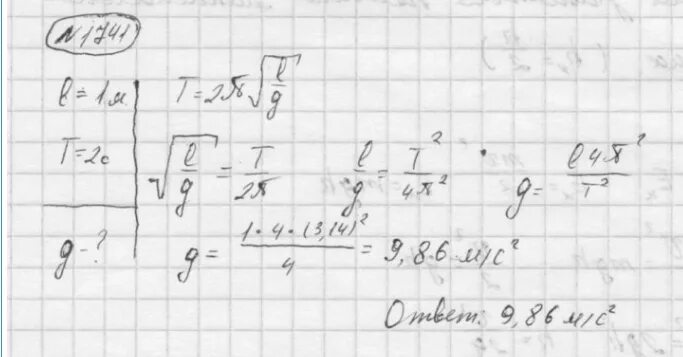 N1741
l = 1м
T = 2π√(l/g)
T = 2с
√(l/g) = T/2π
l/g = T²/4π²
g = l4π²/T²
g - ?
g = 1·4·(3,14)²/4 = 9,86 м/с²
Ответ: 9,86 м/с²